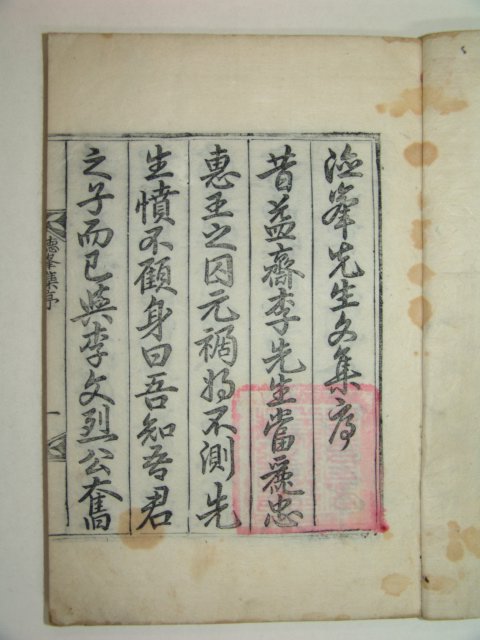 德峯先生文集序
昔益齋李先生當麗忠
惠王之囚元禍將不測先
生憤不顧身曰吾知吾君
之子而已與李文烈公奮
德峯集序
一